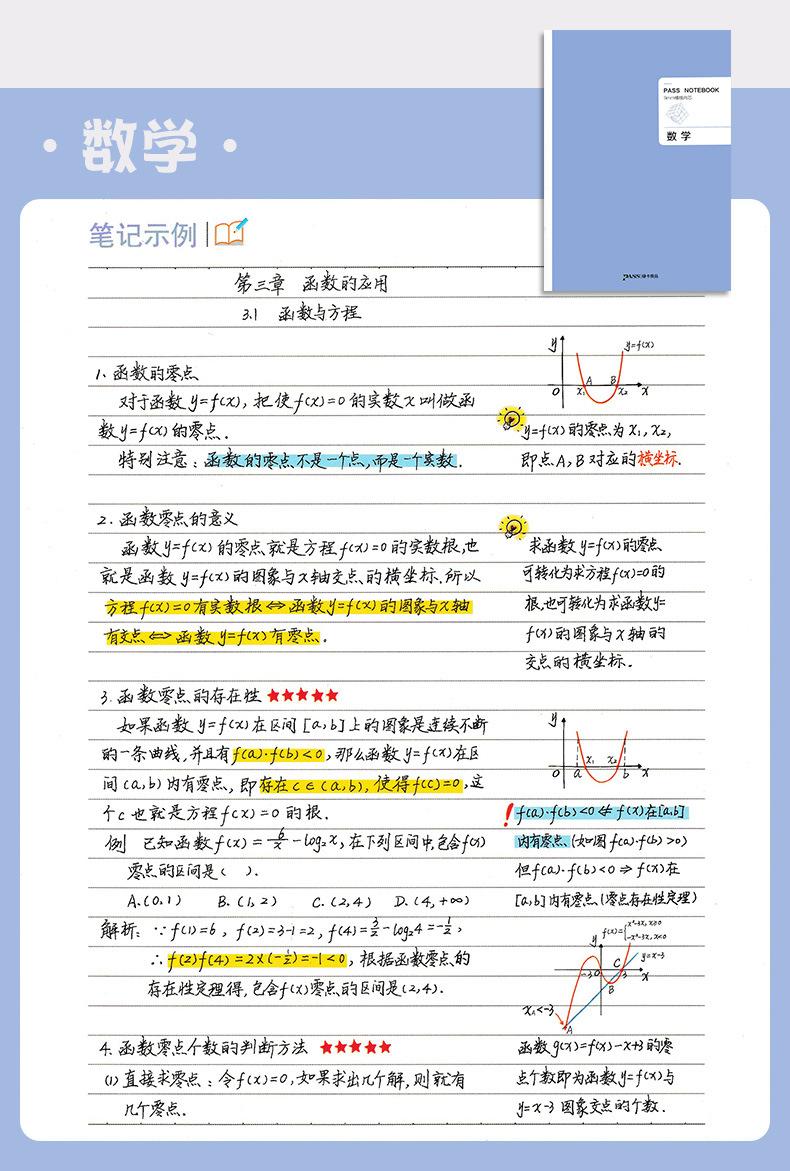 PASS NOTEBOOK
数学
数学
笔记示例
第三章 函数的应用
3.1 函数与方程
1、函数的零点
对于函数y=f(x),把使f(x)=0的实数x叫做函
数y=f(x)的零点.
特别注意:函数的零点不是一个点,而是一个实数.
y
y=f(x)
A B
O x₁ x₂ x
y=f(x)的零点为x₁,x₂,
即点A,B对应的横坐标.
2.函数零点的意义
函数y=f(x)的零点就是方程f(x)=0的实数根,也
就是函数y=f(x)的图象与x轴交点的横坐标.所以
方程f(x)=0有实数根⇔函数y=f(x)的图象与x轴
有交点⇔函数y=f(x)有零点.
求函数y=f(x)的零点
可转化为求方程f(x)=0的
根,也可转化为求函数y=
f(x)的图象与x轴的
交点的横坐标.
3.函数零点的存在性★★★★★
如果函数y=f(x)在区间[a,b]上的图象是连续不断
的一条曲线,并且有f(a)·f(b)<0,那么函数y=f(x)在区
间(a,b)内有零点,即存在c∈(a,b),使得f(c)=0,这
个c也就是方程f(x)=0的根.
例 已知函数f(x)=6/x-log₂x,在下列区间中,包含f(x)
零点的区间是( ).
A.(0,1) B.(1,2) C.(2,4) D.(4,+∞)
解析:∵f(1)=6,f(2)=3-1=2,f(4)=3/2-log₂4=-1/2,
∴f(2)f(4)=2×(-1/2)=-1<0,根据函数零点的
存在性定理得,包含f(x)零点的区间是(2,4).
y
x₁ x₂
O a b x
!f(a)·f(b)<0⇍f(x)在[a,b]
内有零点(如图f(a)·f(b)>0)
但f(a)·f(b)<0⇒f(x)在
[a,b]内有零点(零点存在性定理)
f(x)={x²-3x,x≥0
-x²-3x,x<0
y
y=x-3
C
-3 O 3 x
B
x₁<-3
A
4.函数零点个数的判断方法 ★★★★★
(1)直接求零点:令f(x)=0,如果求出几个解,则就有
几个零点.
函数g(x)=f(x)-x+3的零
点个数即为函数y=f(x)与
y=x-3图象交点的个数.